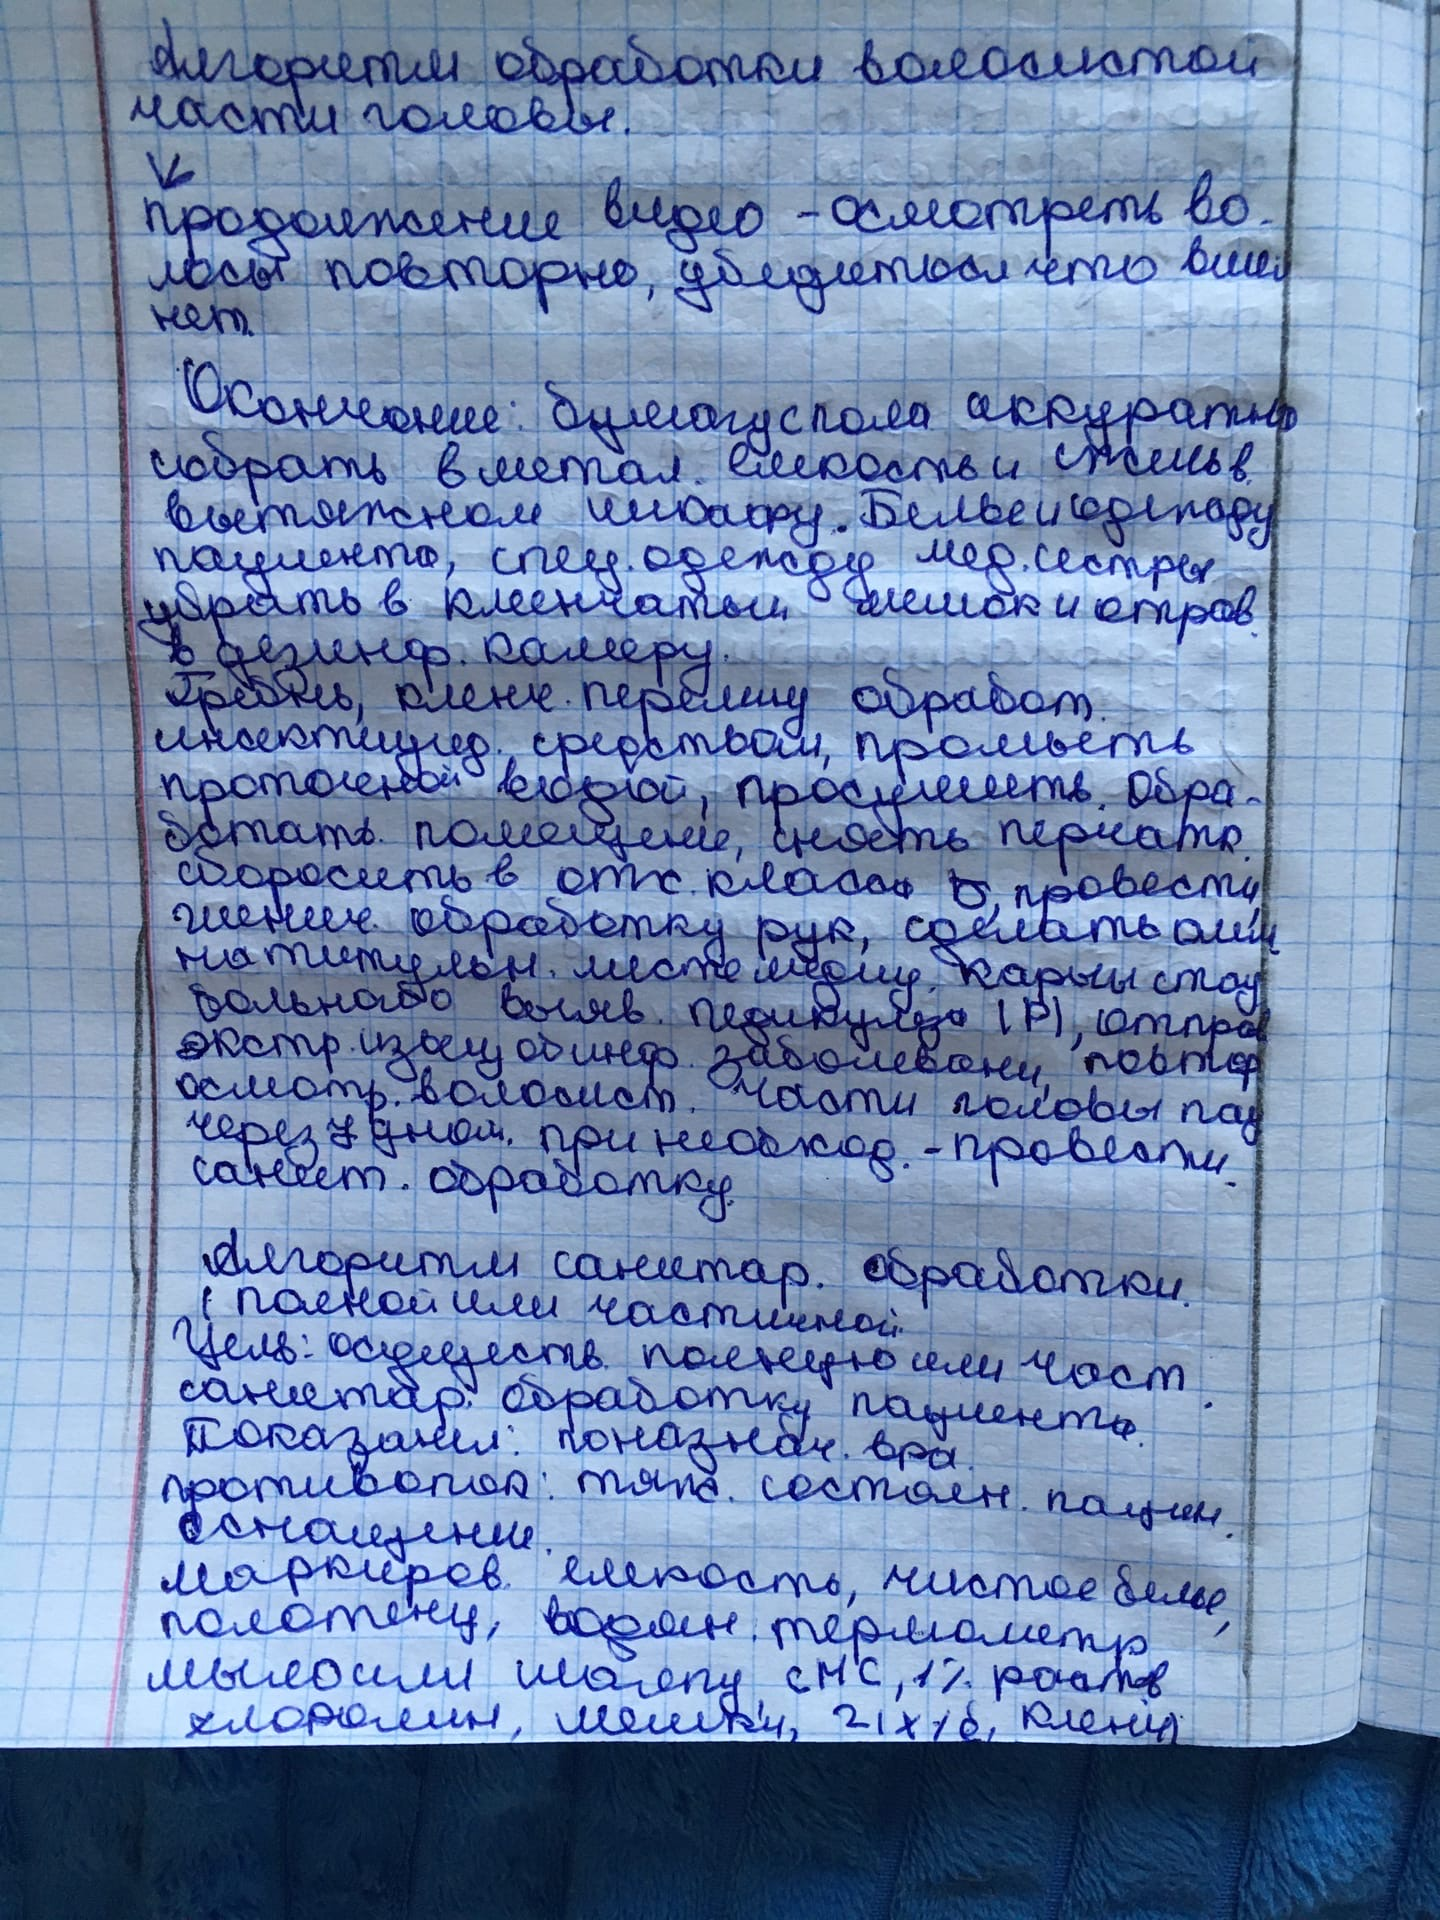 Алгоритм обработки волосистой
части головы.
продолжение видео - осмотреть во-
лосы повторно, убедиться что вшей
нет.
Окончание: бумагу с пола аккуратно
собрать в метал. емкость и сжечь в
вытяжном шкафу. Белье и одежду
пациента, спец. одежду мед. сестры
убрать в клеенчатый мешок и отправ.
в дезинф. камеру.
Гребень, клеенч. перелину обработ.
инсектицид. средством, промыть
проточной водой, просушить. Обра-
ботать помещение, снять перчатк.
сбросить в отх. класса Б, провести
гигиен. обработку рук, сделать
на титульн. листе карты стац
больного о выяв. педикулеза (Р), отправ
экстр. извещ об инф. заболевани, повтор
осмотр. волосист. части головы пац
через 7 дней. при необход. - провести
санит. обработку.
Алгоритм санитар. обработки.
(полной или частичной
Цель: осуществ. полную или част.
санитар. обработку пациента.
Показания: по назнач. вра.
противопок: тяж. состоян. пациен.
Оснащение.
маркиров. емкость, чистое белье,
полотенц, водян. термометр
мыло или шампу, СМС, 1% раств
хлорамин, мешки, клеенч